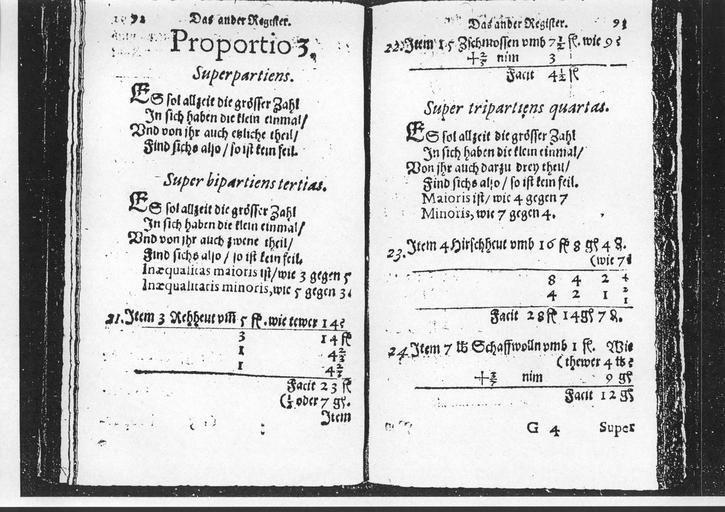 92 Das ander Register.
Proportio 3.
Superpartiens.
ES sol allzeit die grösser Zahl
In sich haben die klein einmal/
Vnd von jhr auch etzliche theil/
Find sichs also / so ist kein feil.
Super bipartiens tertias.
ES sol allzeit die grösser Zahl
In sich haben die klein einmal/
Vnd von jhr auch zwene theil/
Find sichs also / so ist kein feil.
Inæqualitas maioris ist/wie 3 gegen 5
Inæqualitatis minoris, wie 5 gegen 3.
21. Item 3 Rehheut vm̃ 5 fl. wie tewer 14?
3 14 fl
1 4⅔
1 4⅔
Facit 23 fl
(⅓ oder 7 gl.
Item
Das ander Register. 93
22. Item 15 Zschwossen vmb 7½ fl. wie 9?
+⅔ nim 3
Facit 4½ fl
Super tripartiens quartas.
ES sol allzeit die grösser Zahl
In sich haben die klein einmal/
Von jhr auch darzu drey theil/
Find sichs also / so ist kein feil.
Maioris ist/ wie 4 gegen 7
Minoris, wie 7 gegen 4.
23. Item 4 Hirschheut vmb 16 fl 8 gl 4 ₰.
(wie 7?
8 4 2
4 2 1
Facit 28 fl 14 gl 7 ₰.
24. Item 7 ℔ Schaffwolln vmb 1 fl. Wie
(thewer 4 ℔?
nim 9 gl
Facit 12 gl
G 4 Super